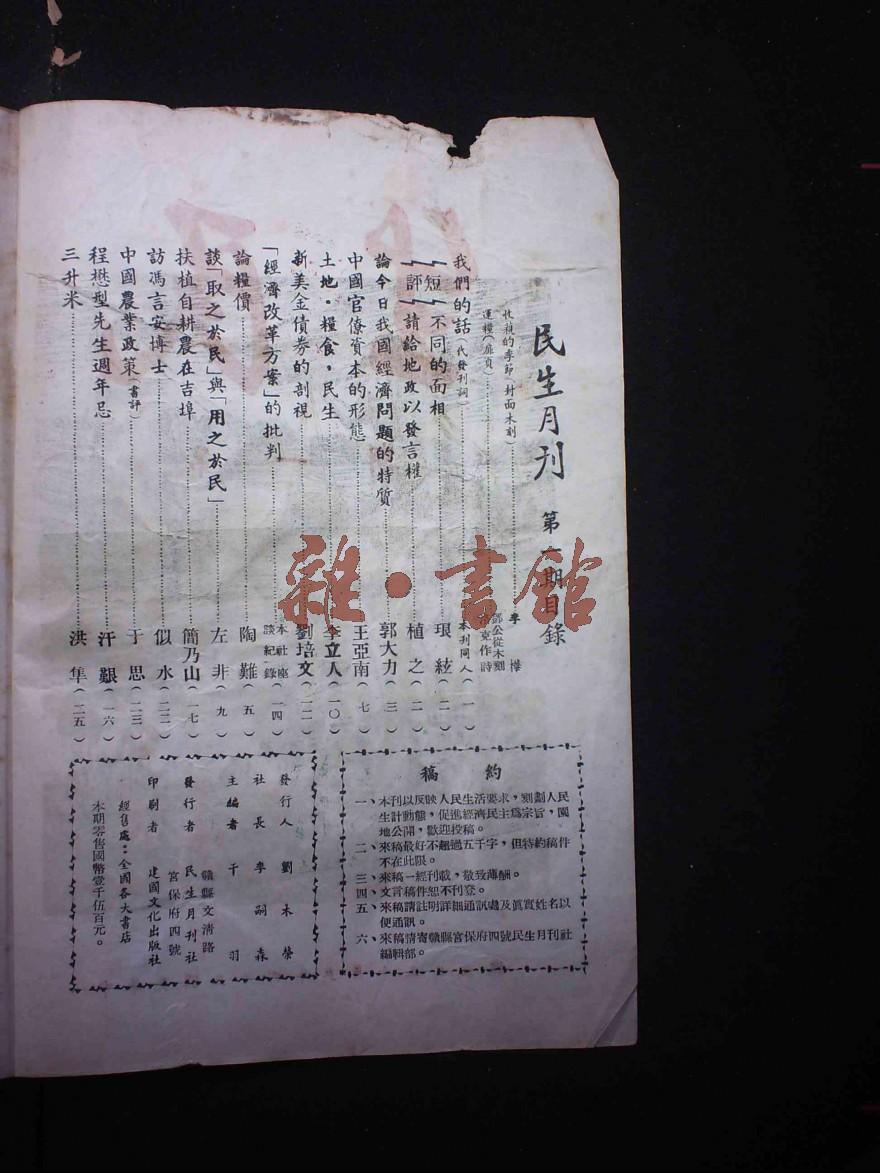 民生月刊 第一期目錄
收穫的季節(封面木刻)……李樺
運糧(扉頁)……鄧公從木刻 克作詩
我們的話(代發刊詞)……本刊同人(一)
短評
不同的面相……琅絃(二)
請給地政以發言權……植之(二)
論今日我國經濟問題的特質……郭大力(三)
中國官僚資本的形態……王亞南(七)
土地·糧食·民生……李立人(一〇)
新美金債券的剖視……劉培文(一二)
「經濟改革方案」的批判……本社座談紀錄(一四)
論糧價……陶難(五)
談「取之於民」與「用之於民」……左非(九)
扶植自耕農在吉埠……簡乃山(一七)
訪馮言安博士……似水(二二)
中國農業政策(書評)……于思(二三)
程懋型先生週年忌……汗艱(一六)
三升米……洪隼(二五)
稿約
一、本刊以反映人民生活要求,刻劃人民
生計動態,促進經濟民主爲宗旨,園
地公開,歡迎投稿。
二、來稿最好不超過五千字,但特約稿件
不在此限。
三、來稿一經刊載,敬致薄酬。
四、文言稿件恕不刊登。
五、來稿請註明詳細通訊處及眞實姓名以
便通訊。
六、來稿請寄贛縣宮保府四號民生月刊社
編輯部。
發行人 劉木榮
社長 李嗣森
主編者 干羽
贛縣文清路
發行者 民生月刊社
宮保府四號
印刷者 建國文化出版社
經售處:全國各大書店
本期零售國幣壹千伍百元。
雜·書館